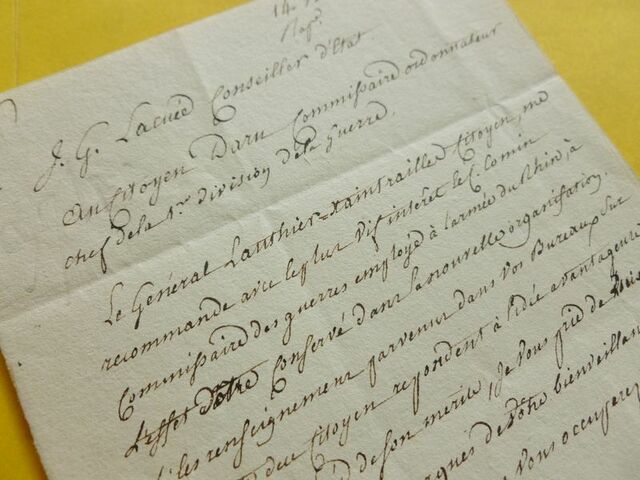 14
Rep.
J. G. Lacuée Conseiller d'Etat
Au Citoyen Daru Commissaire ordonnateur
chef de la 1ere division de la Guerre.
Le Général Lauthier=Xaintrailles Citoyen, me
recommande avec le plus vif interêt le C. Comin
Commissaire des guerres employé à l'armée du Rhin, à
l'effet d'être Conservé dans la nouvelle organisation.
si les renseignements parvenus dans vos Bureaux sur
ce citoyen repondent à l'idée avantageuse
de son merite, je vous prie de
de votre bienveillan
vous occuperez